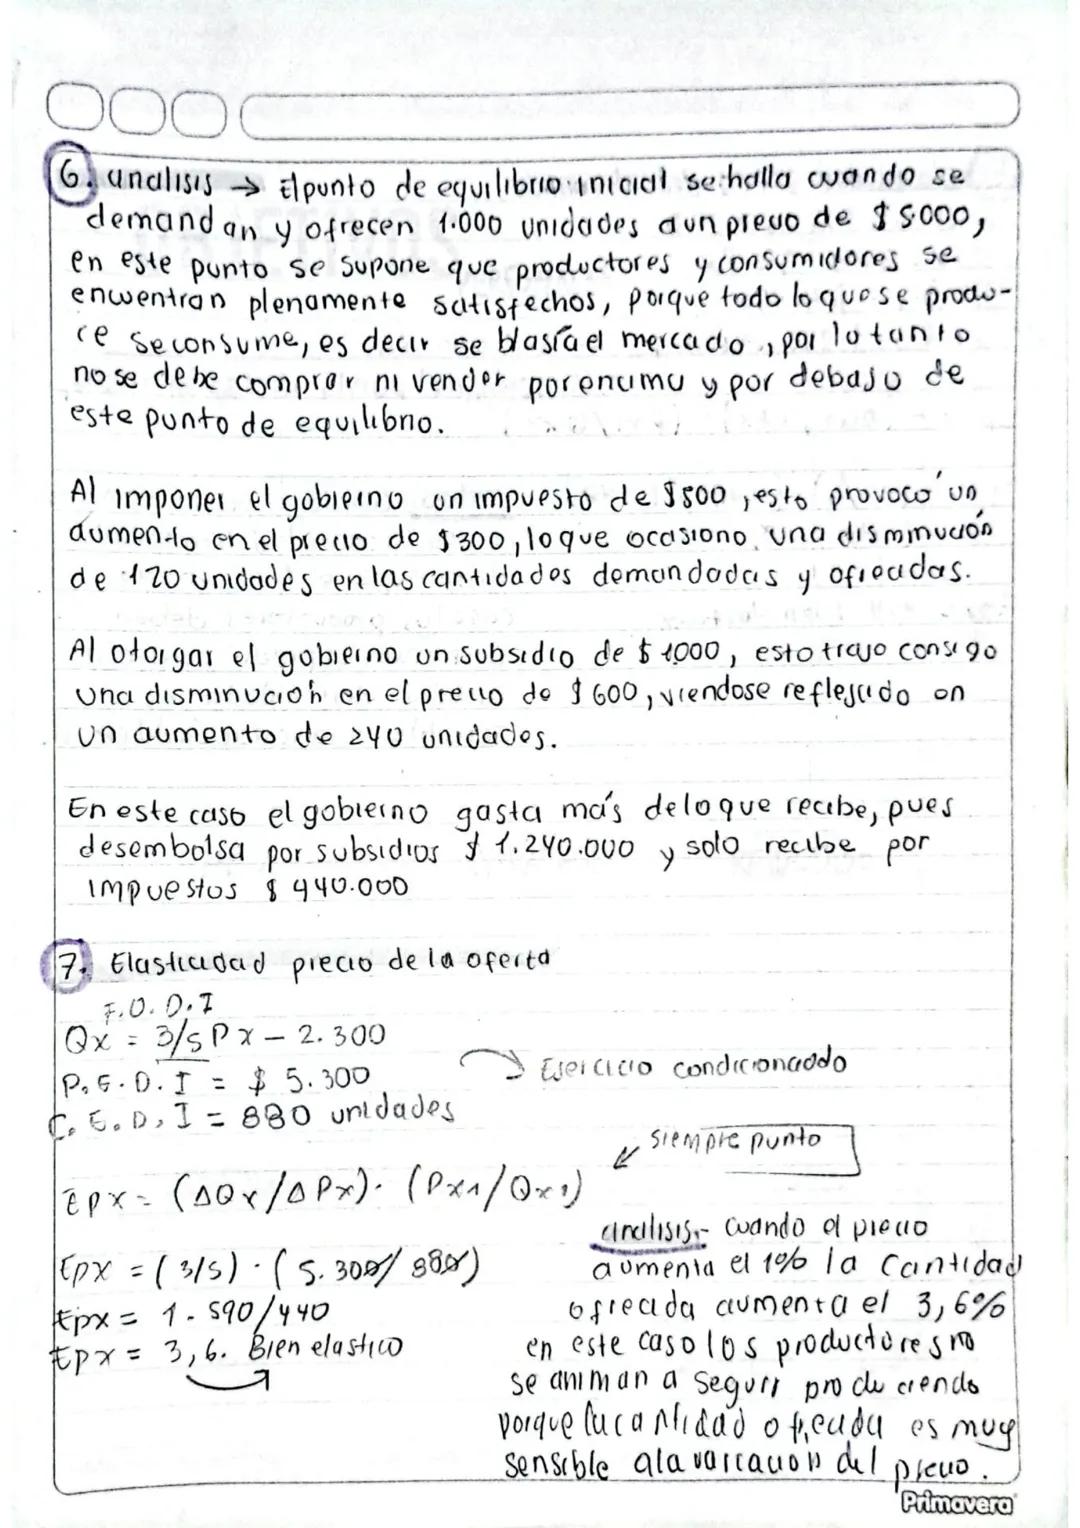 6. analisis → El punto de equilibrio inicial se halla cuando se
demandan y ofrecen 1.000 unidades a un precio de $5.000,
en este punto se supone que productores y consumidores se
encuentran plenamente satisfechos, porque todo lo que se produ-
ce se consume, es decir se blasía el mercado, por lo tanto
no se debe comprar ni vender por encima y por debajo de
este punto de equilibrio.
Al imponer el gobierno un impuesto de $500, esto provocó un
aumento en el precio de $300, lo que ocasiono una disminución
de 120 unidades en las cantidades demandadas y ofrecidas.
Al otorgar el gobierno un subsidio de $1000, esto trajo consigo
una disminución en el precio de $600, viendose reflejado en
un aumento de 240 unidades.
En este caso el gobierno gasta más de lo que recibe, pues
desembolsa por subsidios $1.240.000 y solo recibe por
impuestos $440.000
7. Elasticidad precio de la oferta
F.O.D.I
Qx = 3/5 Px - 2.300
P.E.D.I = $5.300
C.E.D.I = 880 unidades
→ Ejercicio condicionado
siempre punto
Epx = (ΔQx/ΔPx) · (Px1/Qx1)
Epx = (3/5) · (5.300/880)
Epx = 1.590/440
Epx = 3,6. Bien elastico
analisis.- Cuando el precio
aumenta el 1% la Cantidad
ofrecida aumenta el 3,6%
en este caso los productores no
se animan a seguir produciendo
porque la cantidad ofrecida es muy
sensible a la variacion del precio.
Primavera